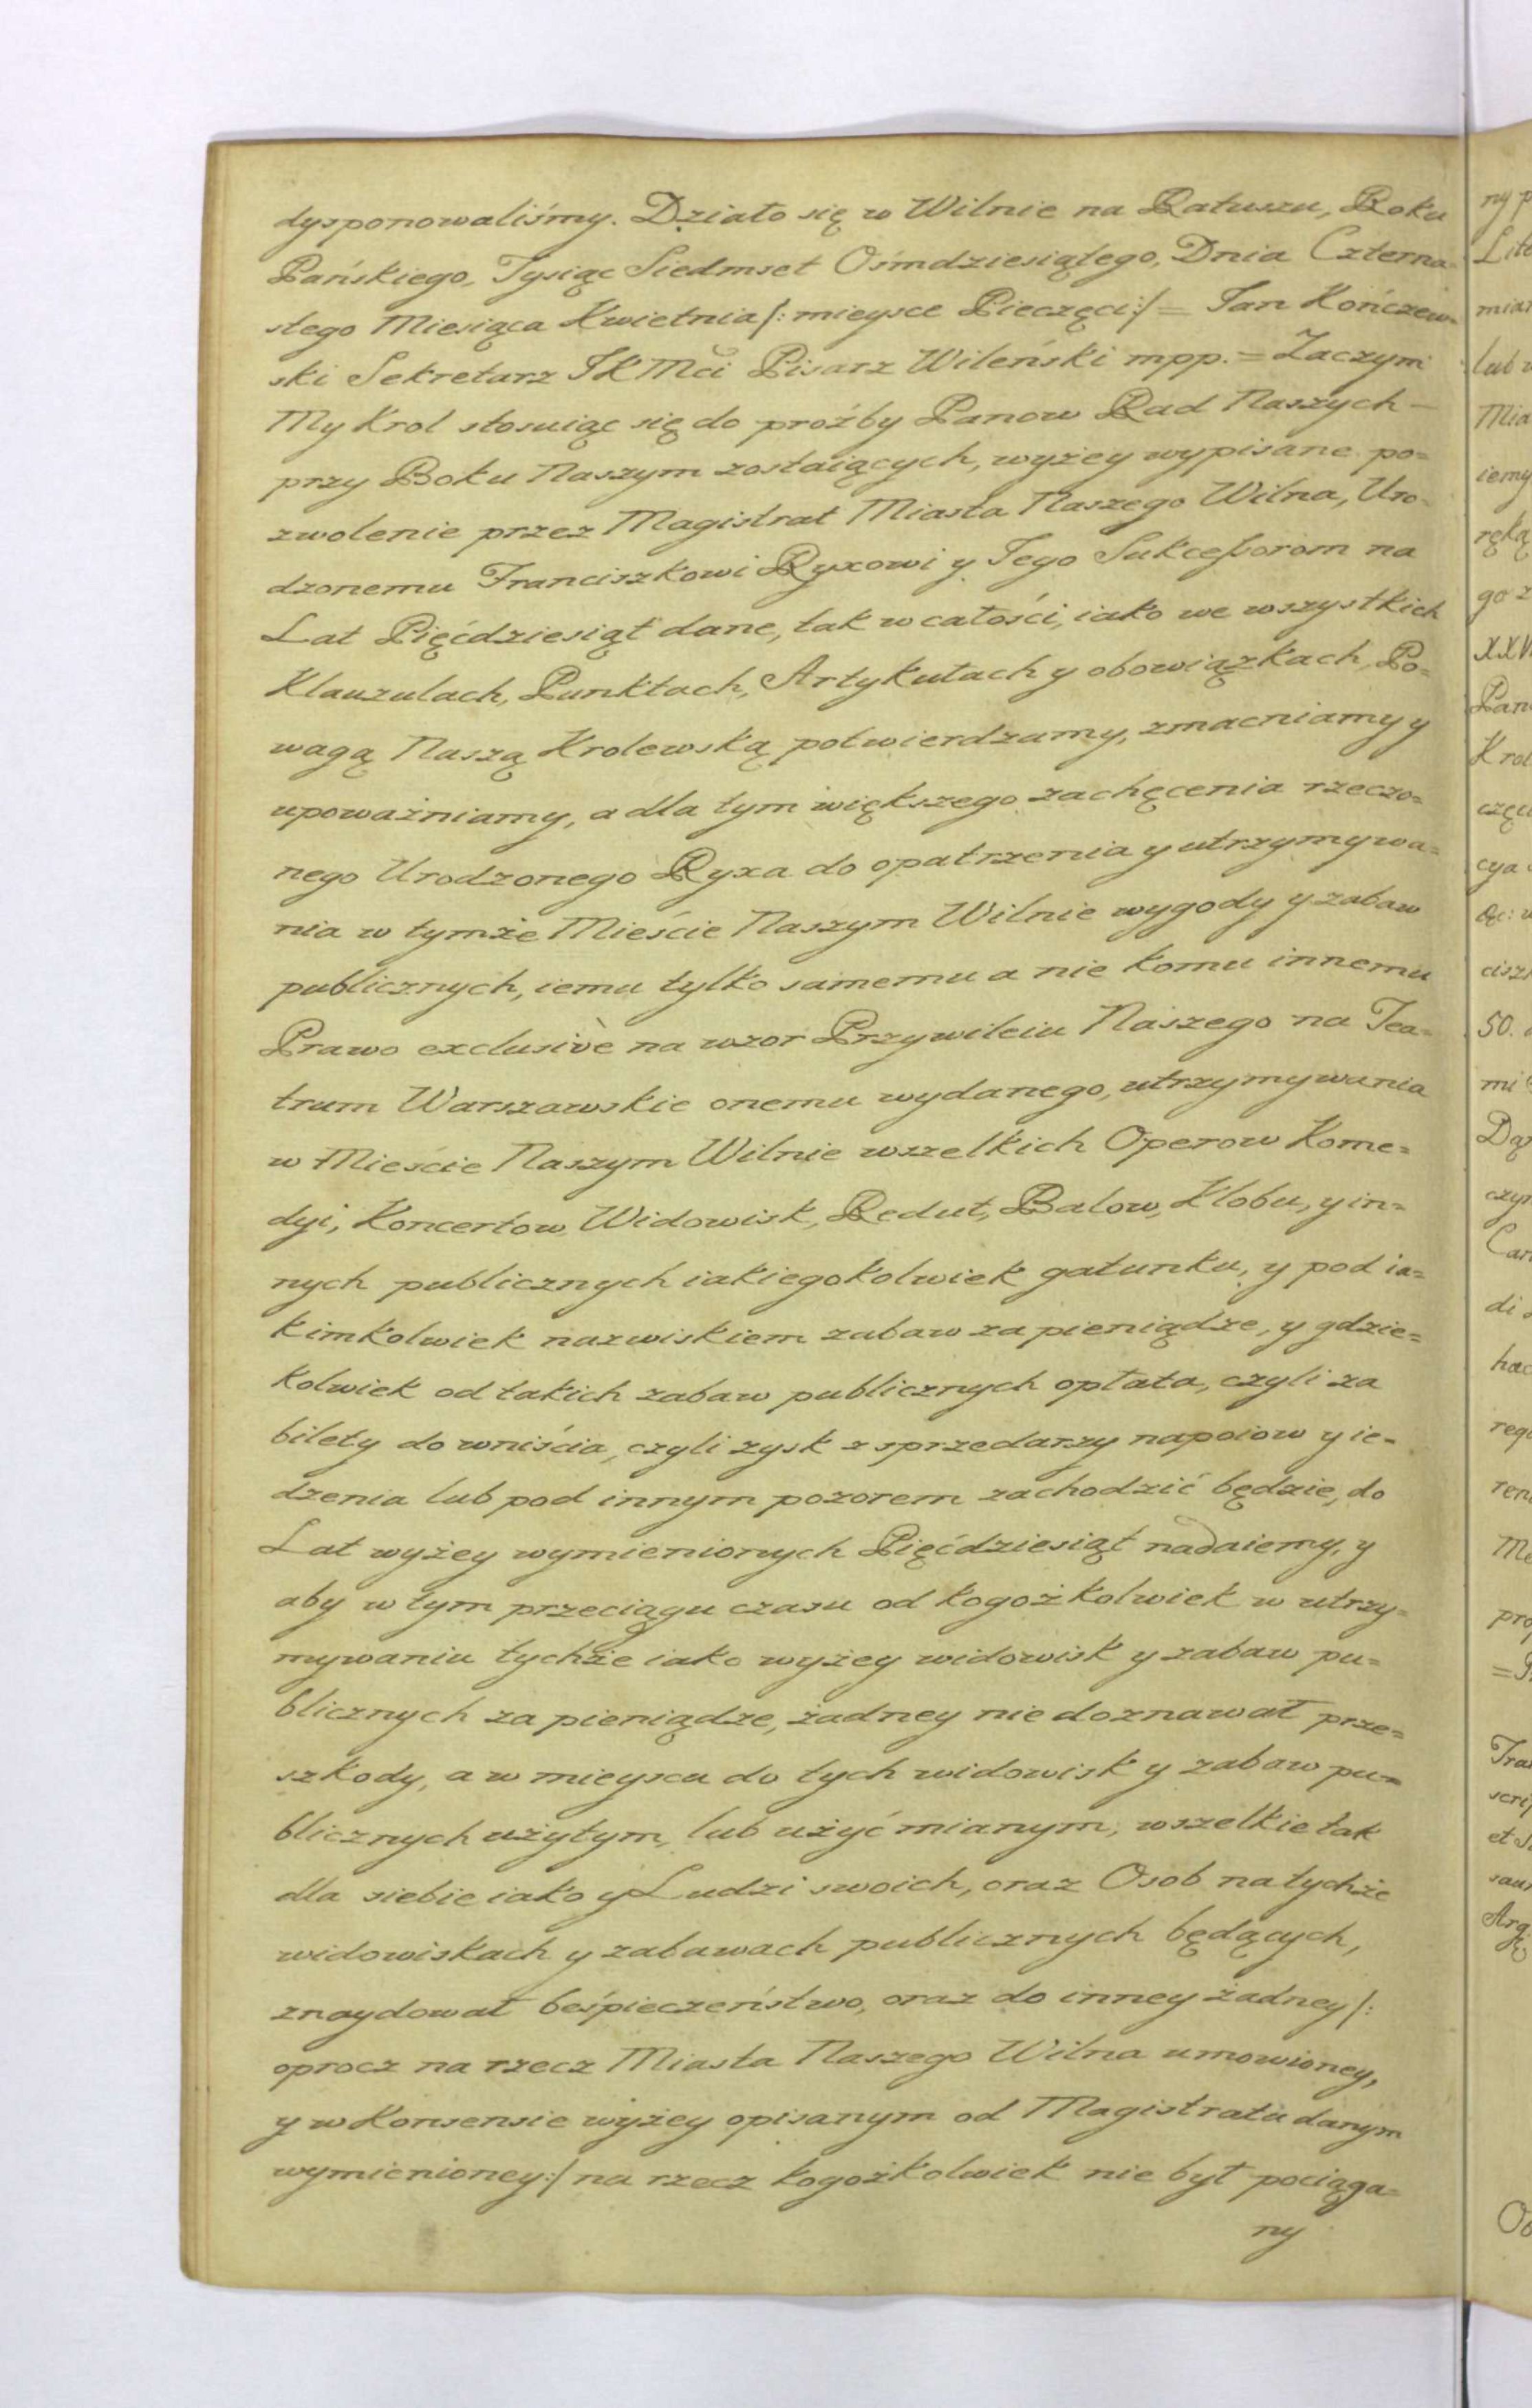 dysponowaliśmy. Działo się w Wilnie na Ratuszu, Roku
Pańskiego, Tysiąc Siedmset Ośmdziesiątego, Dnia Czterna-
stego Miesiąca Kwietnia /: mieysce Pieczęci :/ = Jan Kończew-
ski Sekretarz JKMci Pisarz Wileński mpp. = Zaczym
My Krol stosuiąc się do proźby Panow Rad Naszych –
przy Boku Naszym zostaiących, wyżey wypisane po=
zwolenie przez Magistrat Miasta Naszego Wilna, Uro-
dzonemu Franciszkowi Ryxowi y Jego Sukcessorom na
Lat Pięćdziesiąt dane, tak w całości, iako we wszystkich
Klauzulach, Punktach, Artykułach y obowiązkach, Po=
wagą Naszą Krolewską potwierdzamy, zmacniamy y
upoważniamy, a dla tym większego zachęcenia rzeczo=
nego Urodzonego Ryxa do opatrzenia y utrzymywa=
nia w tymże Mieście Naszym Wilnie wygody y zabaw
publicznych, iemu tylko samemu a nie komu innemu
Prawo exclusivè na wzor Przywileiu Naszego na Tea-
trum Warszawskie onemu wydanego, utrzymywania
w Mieście Naszym Wilnie wszelkich Operow Kome=
dyi, Koncertow, Widowisk, Redut, Balow, Klobu, y in=
nych publicznych iakiegokolwiek gatunku, y pod ia=
kimkolwiek nazwiskiem zabaw za pieniądze, y gdzie=
kolwiek od takich zabaw publicznych opłata, czyli za
bilety do wniścia, czyli zysk z sprzedarzy napoiow y ie-
dzenia lub pod innym pozorem zachodzić będzie, do
Lat wyżey wymienionych Pięćdziesiąt nadaiemy, y
aby w tym przeciągu czasu od kogożkolwiek w utrzy-
mywaniu tychże iako wyżey widowisk y zabaw pu=
blicznych za pieniądze, żadney nie doznawał prze=
szkody, a w mieyscu do tych widowisk y zabaw pu=
blicznych użytym, lub użyć mianym, wszelkie tak
dla siebie iako y Ludzi swoich, oraz Osob na tychże
widowiskach y zabawach publicznych będących,
znaydował beśpieczeństwo, oraz do inney żadney /:
oprocz na rzecz Miasta Naszego Wilna umowioney,
y w Konsensie wyżey opisanym od Magistratu danym
wymienioney :/ na rzecz kogożkolwiek nie był pociąga=
ny